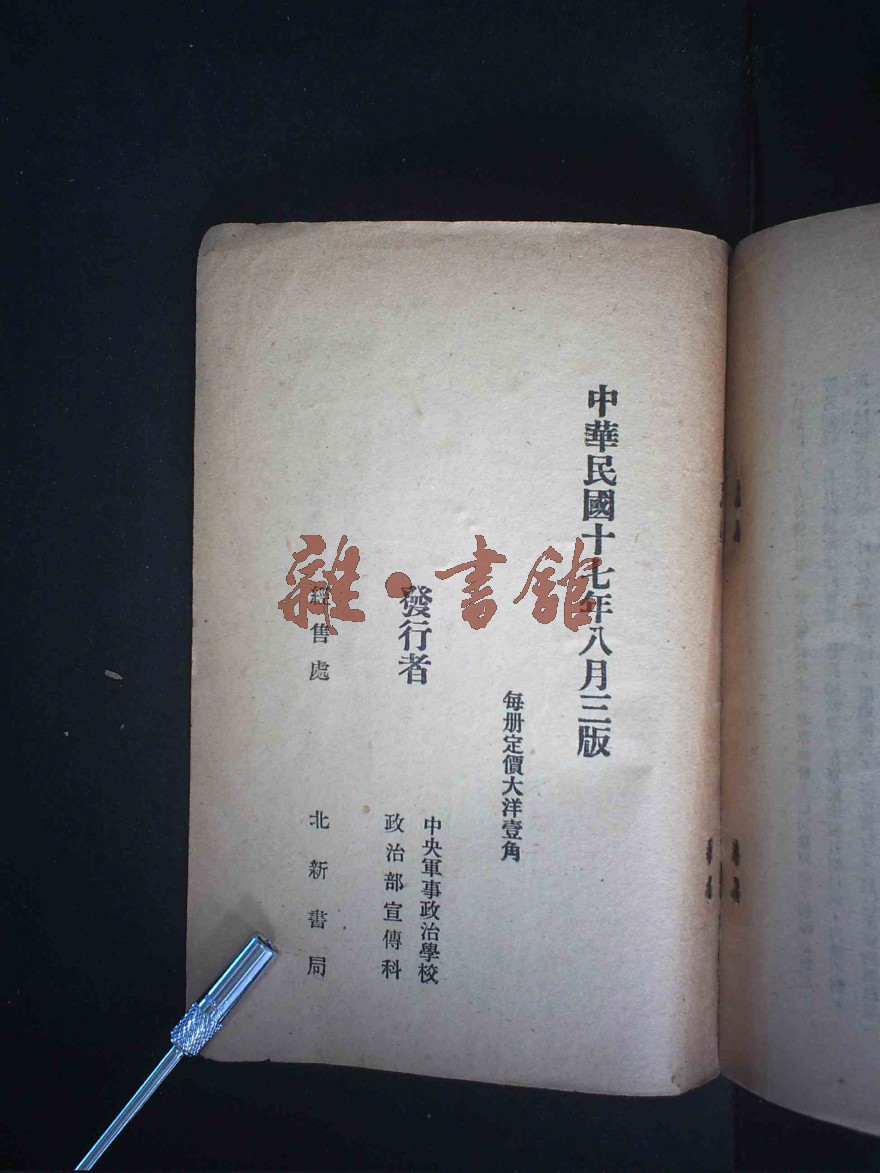 中華民國十七年八月三版
每册定價大洋壹角
發行者
中央軍事政治學校
政治部宣傳科
經售處
北新書局
雜·書館